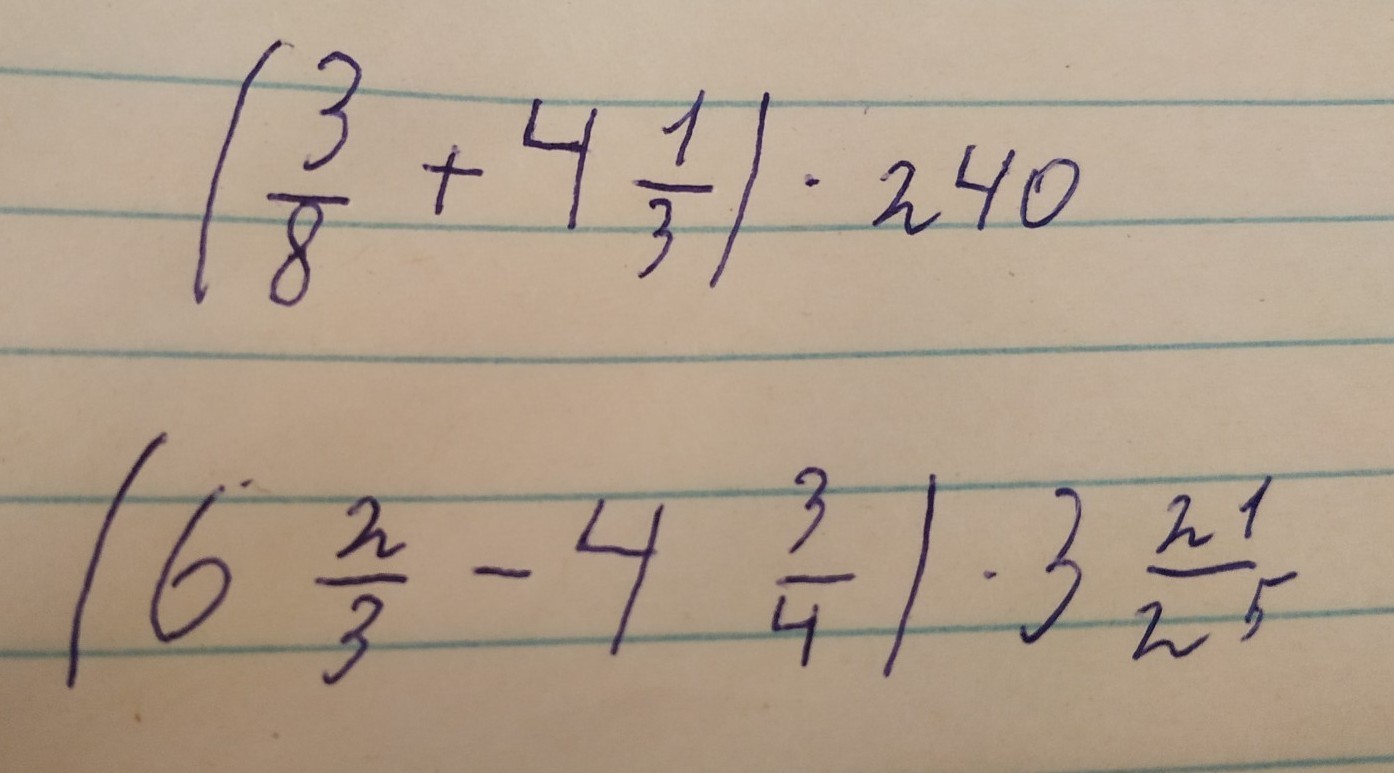 (3/8 + 4 1/3) · 240
(6 2/3 - 4 3/4) · 3 21/25